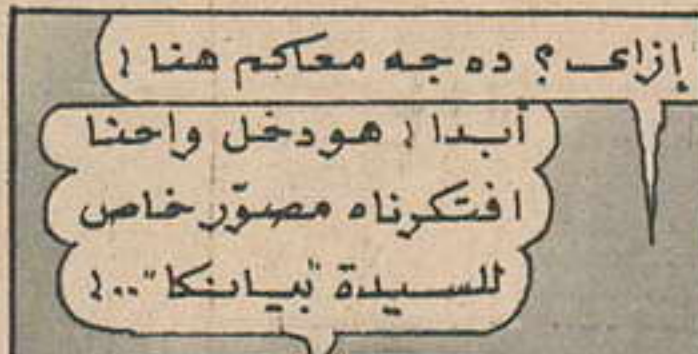 إزاى؟ ده جه معاكم هنا!
أبدا! هو دخل واحنا
افتكرناه مصوّر خاص
للسيدة "بيانكا"..!